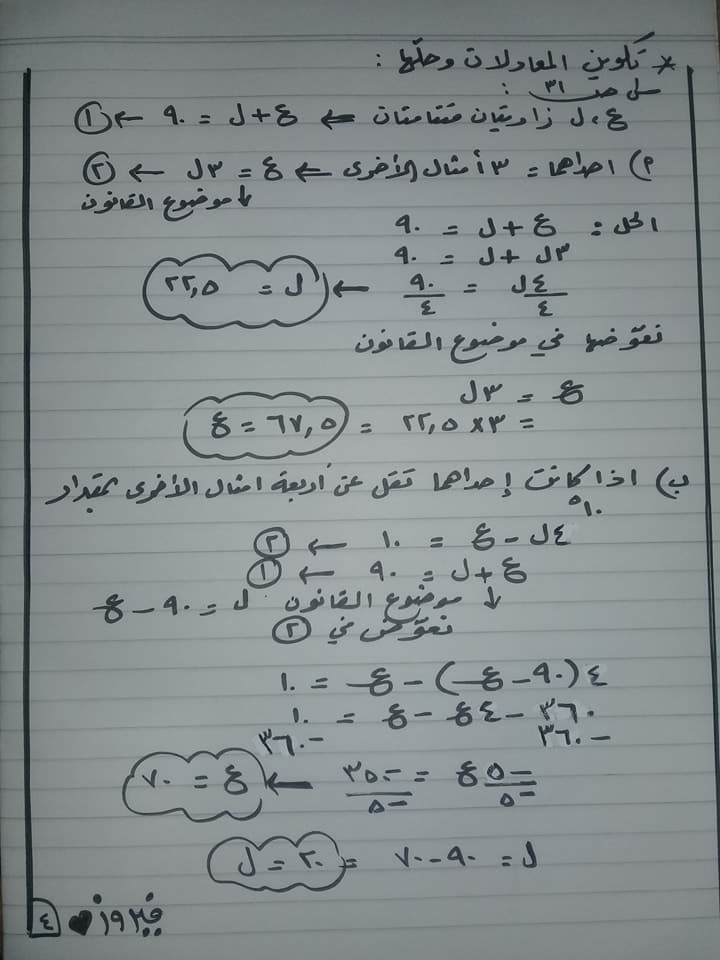 * تكوين المعادلات وحلّها :
س١ ص ٣١ :
ع ، ل زاويتان متتامتان ← ع + ل = ٩٠ ← ①
م) احداهما = ٣ أمثال الأخرى ← ع = ٣ل ← ②
↓ موضوع القانون
الحل : ع + ل = ٩٠
٣ل + ل = ٩٠
٤ل/٤ = ٩٠/٤ ← ل = ٢٢,٥
نعوّضها في موضوع القانون
ع = ٣ل
= ٣ × ٢٢,٥ = ٦٧,٥ = ع
ب) اذا كانت إحداهما تقل عن أربعة امثال الأخرى بمقدار
١٠°
٤ل - ع = ١٠ ← ②
ع + ل = ٩٠ ← ①
↓ موضوع القانون ل = ٩٠ - ع
نعوّض في ②
٤(٩٠ - ع) - ع = ١٠
٣٦٠ - ٤ع - ع = ١٠
-٣٦٠ -٣٦٠
-٥ع/-٥ = -٣٥٠/-٥ ← ع = ٧٠
ل = ٩٠ - ٧٠ = ٢٠ = ل
فيروز ♥ ٤